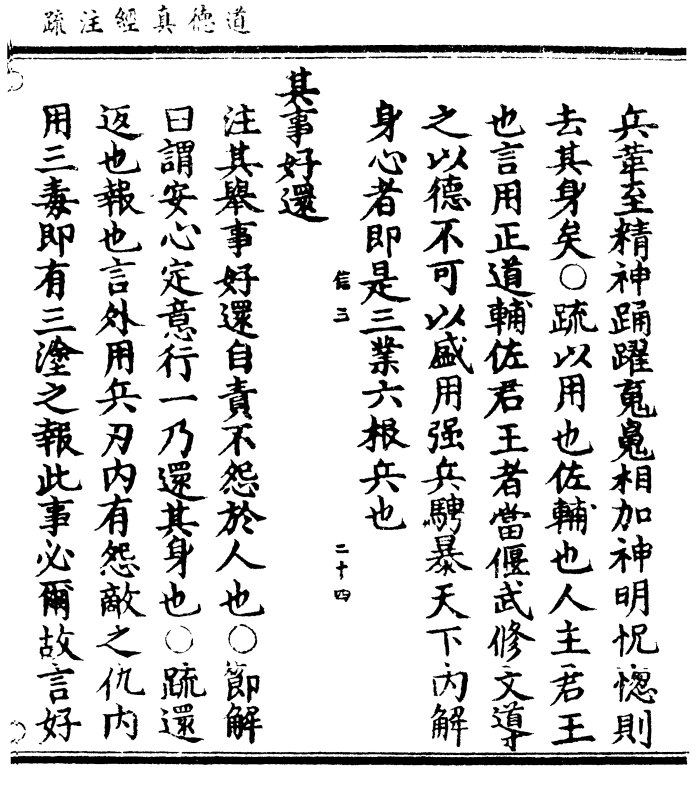 道德真經注疏
兵革至精神踊躍䰟㲋相加神明怳惚則
去其身矣○疏以用也佐輔也人主君王
也言用正道輔佐君王者當偃武修文導
之以德不可以盛用强兵騁暴天下內解
身心者即是三業六根兵也
信三
二十四
其事好還
注其舉事好還自責不怨於人也○節解
曰謂安心定意行一乃還其身也○疏還
返也報也言外用兵刃內有怨敵之仇內
用三毒即有三塗之報此事必爾故言好